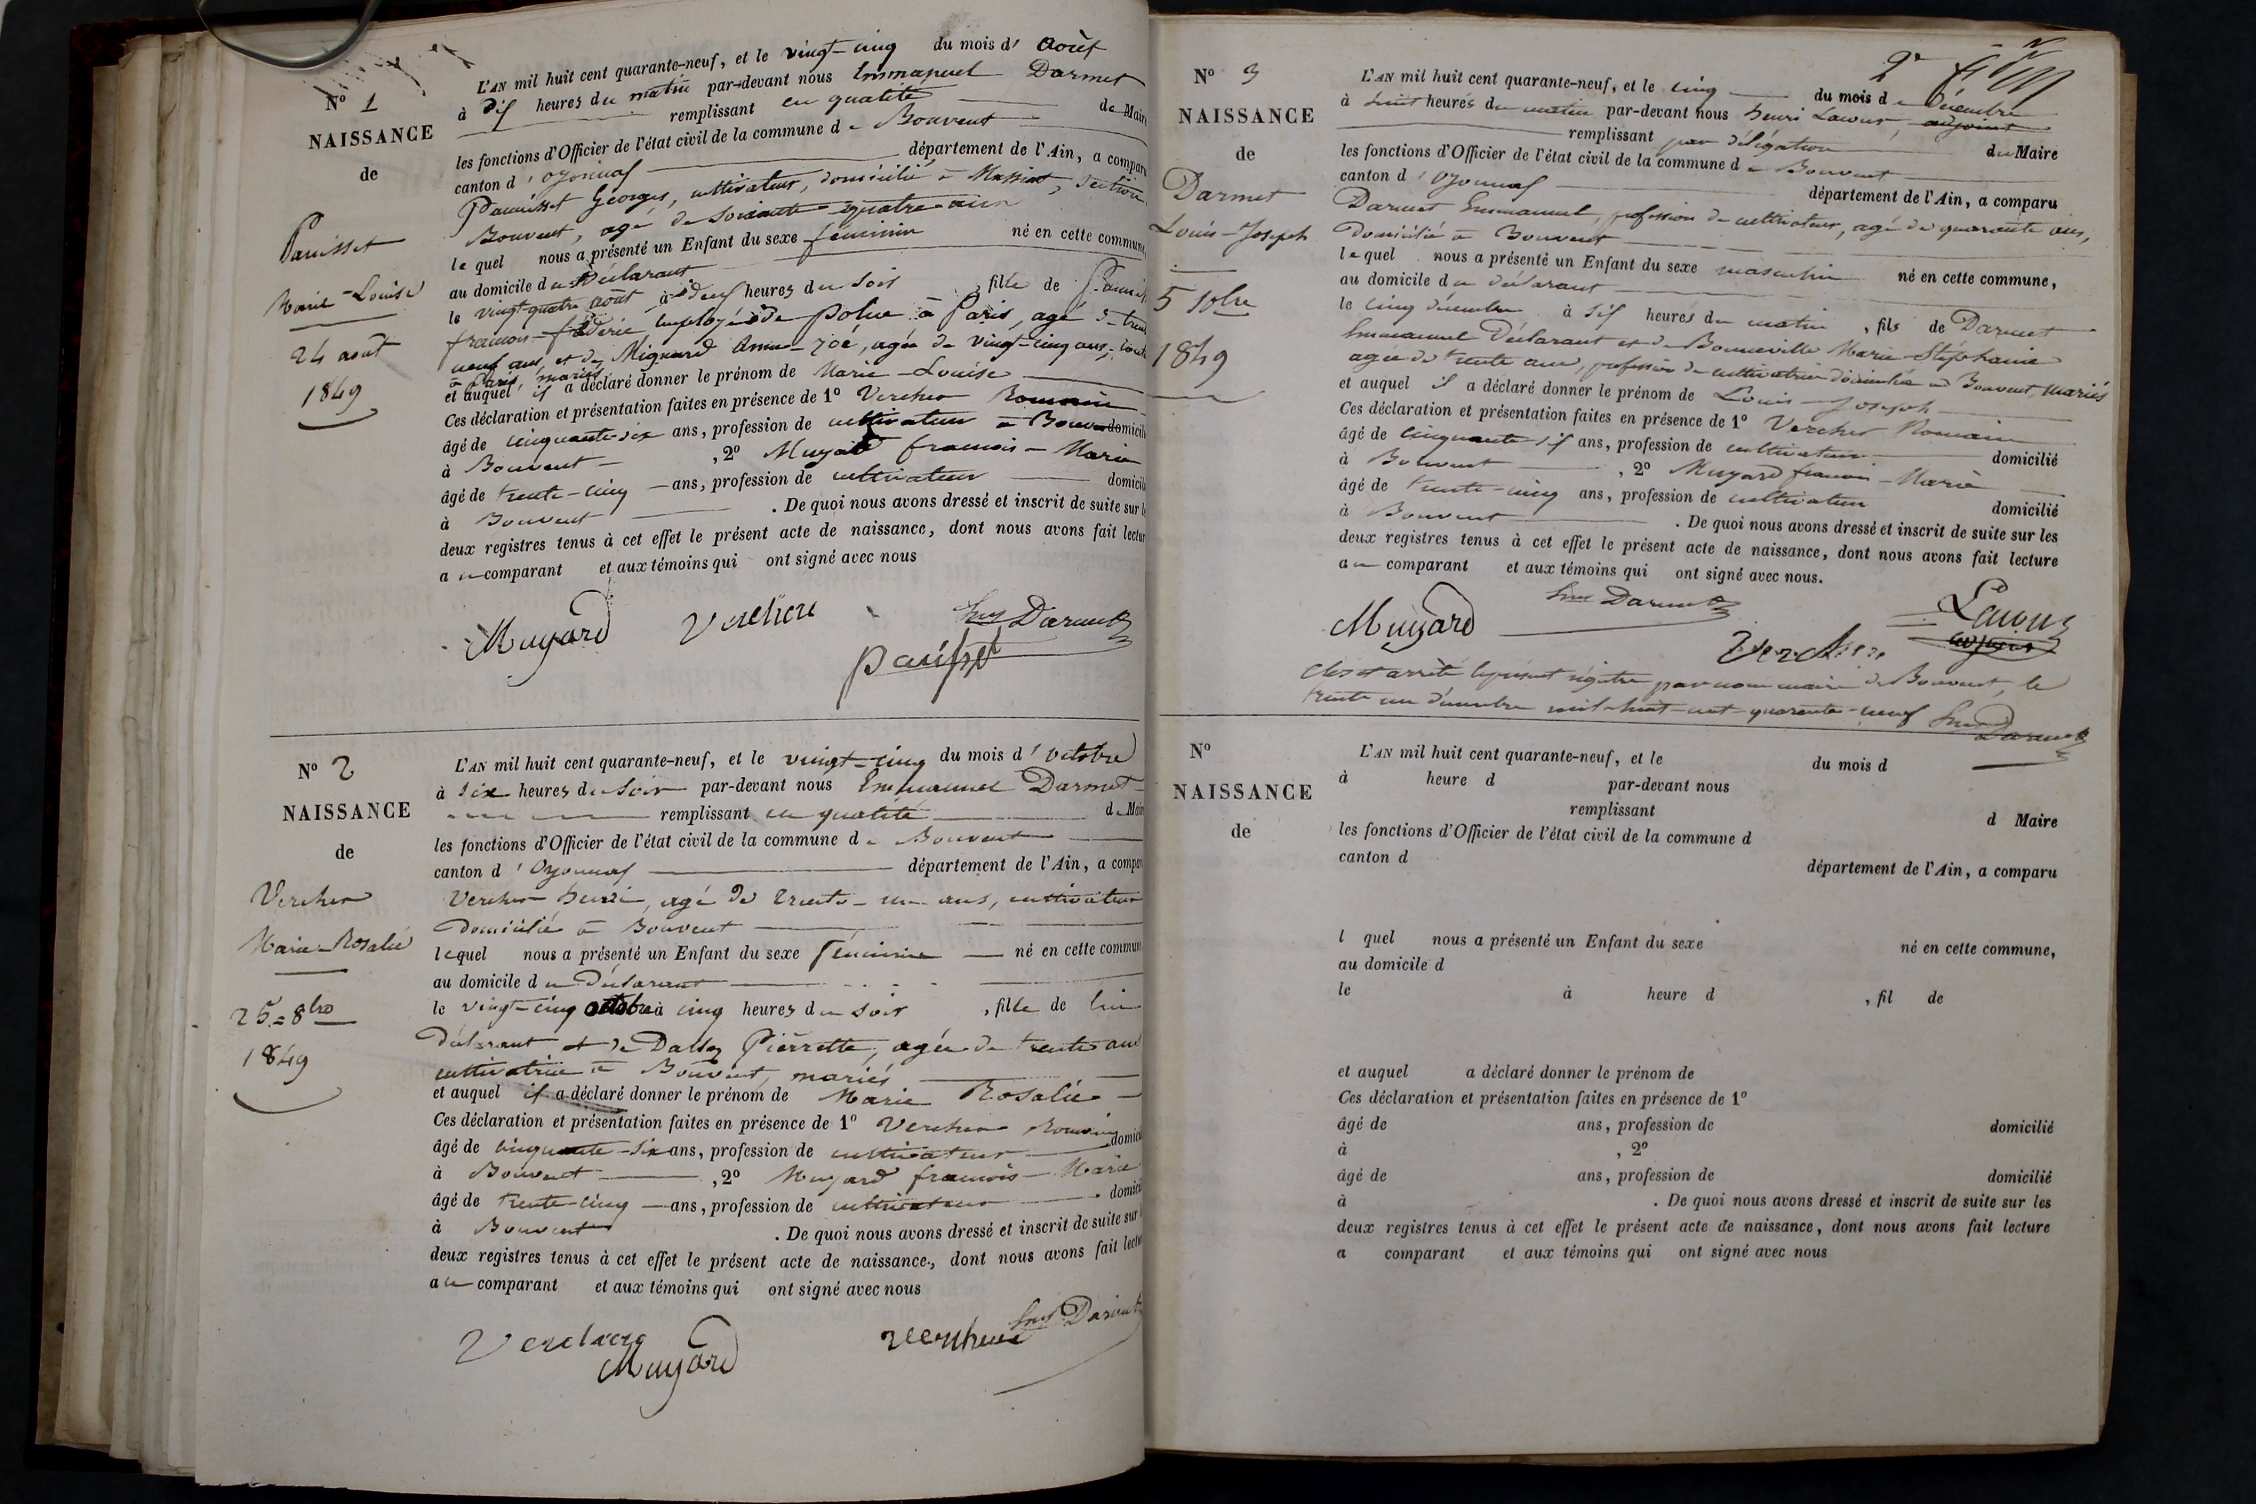 N° 1
NAISSANCE
de
Panisset
Marie-Louise
24 août
1849
L'AN mil huit cent quarante-neuf, et le vingt-cinq du mois d' août
à dix heures du matin par-devant nous Emmanuel Darmet
remplissant en qualité de Maire
les fonctions d'Officier de l'état civil de la commune de Bouvent
canton d'oyonnax département de l'Ain, a comparu
Panisset Georges, cultivateur, domicilié à Massiat, section
Bouvent, agé de soixante-quatre ans
lequel nous a présenté un Enfant du sexe féminin né en cette commune,
au domicile du Déclarant
le vingt-quatre août, à deux heures du soir, fille de Panisset
françois-fréderic employé de police à Paris, agé de trente
neuf ans, et de Mignard Anne-Zoé, agée de vingt-cinq ans,
à Paris, mariés
et auquel il a déclaré donner le prénom de Marie-Louise
Ces déclaration et présentation faites en présence de 1° Verchere Romain
âgé de cinquante-six ans, profession de cultivateur à Bouv domicilié
à Bouvent, 2° Muyard francois-Marie
âgé de trente-cinq ans, profession de cultivateur domicilié
à Bouvent. De quoi nous avons dressé et inscrit de suite sur les
deux registres tenus à cet effet le présent acte de naissance, dont nous avons fait lecture
au comparant et aux témoins qui ont signé avec nous
Muyard Verchere Darmet
panisset
N° 2
NAISSANCE
de
Verchere
Marie-Rosalie
25=8bre
1849
L'AN mil huit cent quarante-neuf, et le vingt-cinq du mois d'octobre
à six heures du soir par-devant nous Emmanuel Darmet
remplissant en qualité de Maire
les fonctions d'Officier de l'état civil de la commune de Bouvent
canton d'Oyonnax département de l'Ain, a comparu
Verchere henri, agé de trente-un ans, cultivateur
domicilié à Bouvent
lequel nous a présenté un Enfant du sexe féminin né en cette commune
au domicile du Déclarant
le vingt-cinq octobre à cinq heures du soir, fille de lui
Déclarant et de Dalloz Pierrette, agée de trente ans
cultivatrice à Bouvent, mariés
et auquel il a déclaré donner le prénom de Marie Rosalie
Ces déclaration et présentation faites en présence de 1° Verchere Romain
âgé de cinquante-six ans, profession de cultivateur domicilié
à Bouvent, 2° Muyard francois-Marie
âgé de trente-cinq ans, profession de cultivateur domicilié
à Bouvent. De quoi nous avons dressé et inscrit de suite sur les
deux registres tenus à cet effet le présent acte de naissance, dont nous avons fait lecture
au comparant et aux témoins qui ont signé avec nous
Verchere Muyard verchere Darmet
N° 3
NAISSANCE
de
Darmet
Louis-Joseph
5 10bre
1849
L'AN mil huit cent quarante-neuf, et le cinq du mois de Décembre
à huit heures du matin par-devant nous henri Lacour, adjoint
remplissant par délégation du Maire
les fonctions d'Officier de l'état civil de la commune de Bouvent
canton d'oyonnax département de l'Ain, a comparu
Darmet Emmanuel, profession de cultivateur, agé de quarante ans,
domicilié à Bouvent
lequel nous a présenté un Enfant du sexe masculin né en cette commune,
au domicile du déclarant
le cinq décembre à six heures du matin, fils de Darmet
Emmanuel Déclarant et de Bonneville Marie-Stéphanie
agée de trente ans, profession de cultivatrice domiciliée à Bouvent, mariés
et auquel il a déclaré donner le prénom de Louis-Joseph
Ces déclaration et présentation faites en présence de 1° Verchere Romain
âgé de cinquante six ans, profession de cultivateur domicilié
à Bouvent, 2° Muyard francois-Marie
âgé de trente-cinq ans, profession de cultivateur domicilié
à Bouvent. De quoi nous avons dressé et inscrit de suite sur les
deux registres tenus à cet effet le présent acte de naissance, dont nous avons fait lecture
au comparant et aux témoins qui ont signé avec nous.
Muyard Darmet Verchere Lacour
adjoint
Clos et arrêté le présent régistre par nous maire de Bouvent, le
trente un décembre mil-huit-cent-quarante-neuf Darmet
N°
NAISSANCE
de
L'AN mil huit cent quarante-neuf, et le du mois d
à heure d par-devant nous
remplissant d Maire
les fonctions d'Officier de l'état civil de la commune d
canton d département de l'Ain, a comparu
l quel nous a présenté un Enfant du sexe né en cette commune,
au domicile d
le à heure d , fil de
et auquel a déclaré donner le prénom de
Ces déclaration et présentation faites en présence de 1°
âgé de ans, profession de domicilié
à , 2°
âgé de ans, profession de domicilié
à . De quoi nous avons dressé et inscrit de suite sur les
deux registres tenus à cet effet le présent acte de naissance, dont nous avons fait lecture
a comparant et aux témoins qui ont signé avec nous